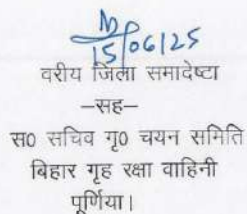 15/06/25
वरीय जिला समादेष्टा
–सह–
स0 सचिव गृ0 चयन समिति
बिहार गृह रक्षा वाहिनी
पूर्णिया।